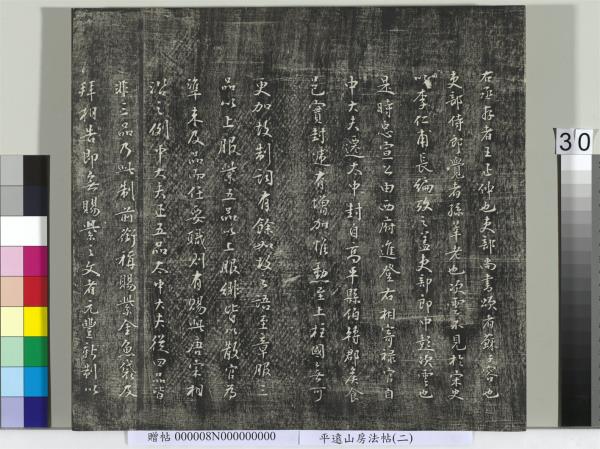 右丞存者王正仲也吏部尚書頌者蘇子容也
吏部侍郎覺者孫莘老也次雲不見於宋史
以李仁甫長編攷之蓋吏部郎中彭次雲也
是時忠宣公由西府進登右相寄祿官自
中大夫遷太中封自高平縣伯轉郡矦食
邑實封遞有增加惟勳至上柱國無可
更加故制詞有餘如故之語至章服三
品以上服紫五品以上服緋皆以散官為
準未及品而任要職則有賜與唐宋相
沿之例中大夫正五品太中大夫從四品皆
非三品乃此制前銜稱賜紫金魚袋及
拜相告即無賜紫之文者元豐新制以
30
贈帖 000008N000000000
平遠山房法帖(二)